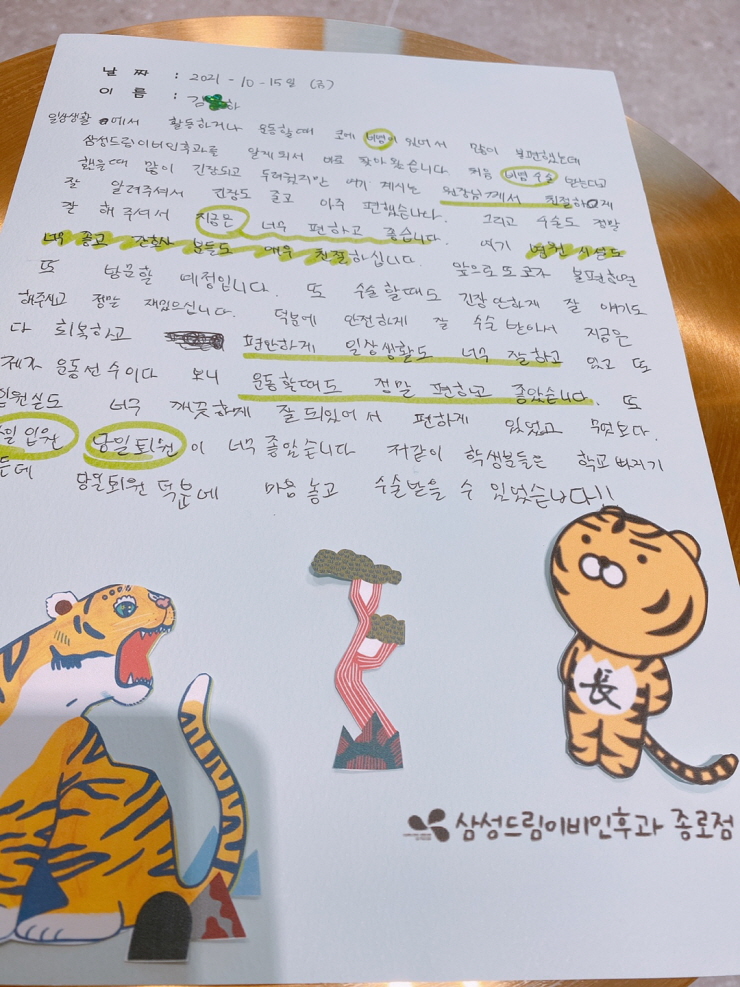 날 짜 : 2021-10-15일 (금)
이 름 : 김 하
일상생활에서 활동하거나 운동할때 코에 비염이 있어서 많이 불편했는데
삼성드림이비인후과를 알게되서 바로 찾아왔습니다. 처음 비염 수술 받는다고
했을때 많이 긴장되고 두려웠지만 여기 계시는 원장님께서 친절하게
잘 알려주셔서 긴장도 줄고 아주 편했습니다. 그리고 수술도 정말
잘 해주셔서 지금은 너무 편하고 좋습니다. 여기 병원 시설도
너무 좋고 간호사 분들도 매우 친절하십니다. 앞으로 또 코가 불편하면
또 방문할 예정입니다. 또 수술할때도 긴장 안하게 잘 얘기도
해주시고 정말 재밌으십니다. 덕분에 안전하게 잘 수술 받아서 지금은
다 회복하고 편안하게 일상생활도 너무 잘하고 있고 또
제가 운동선수이다 보니 운동할때도 정말 편하고 좋았습니다. 또
입원실도 너무 깨끗하게 잘 되있어서 편하게 있었고 무엇보다.
당일 입원 당일퇴원이 너무 좋았습니다 저같이 학생분들은 학교 빠지기
든데 당일퇴원 덕분에 마음 놓고 수술받을 수 있었습니다!!
長
삼성드림이비인후과 종로점